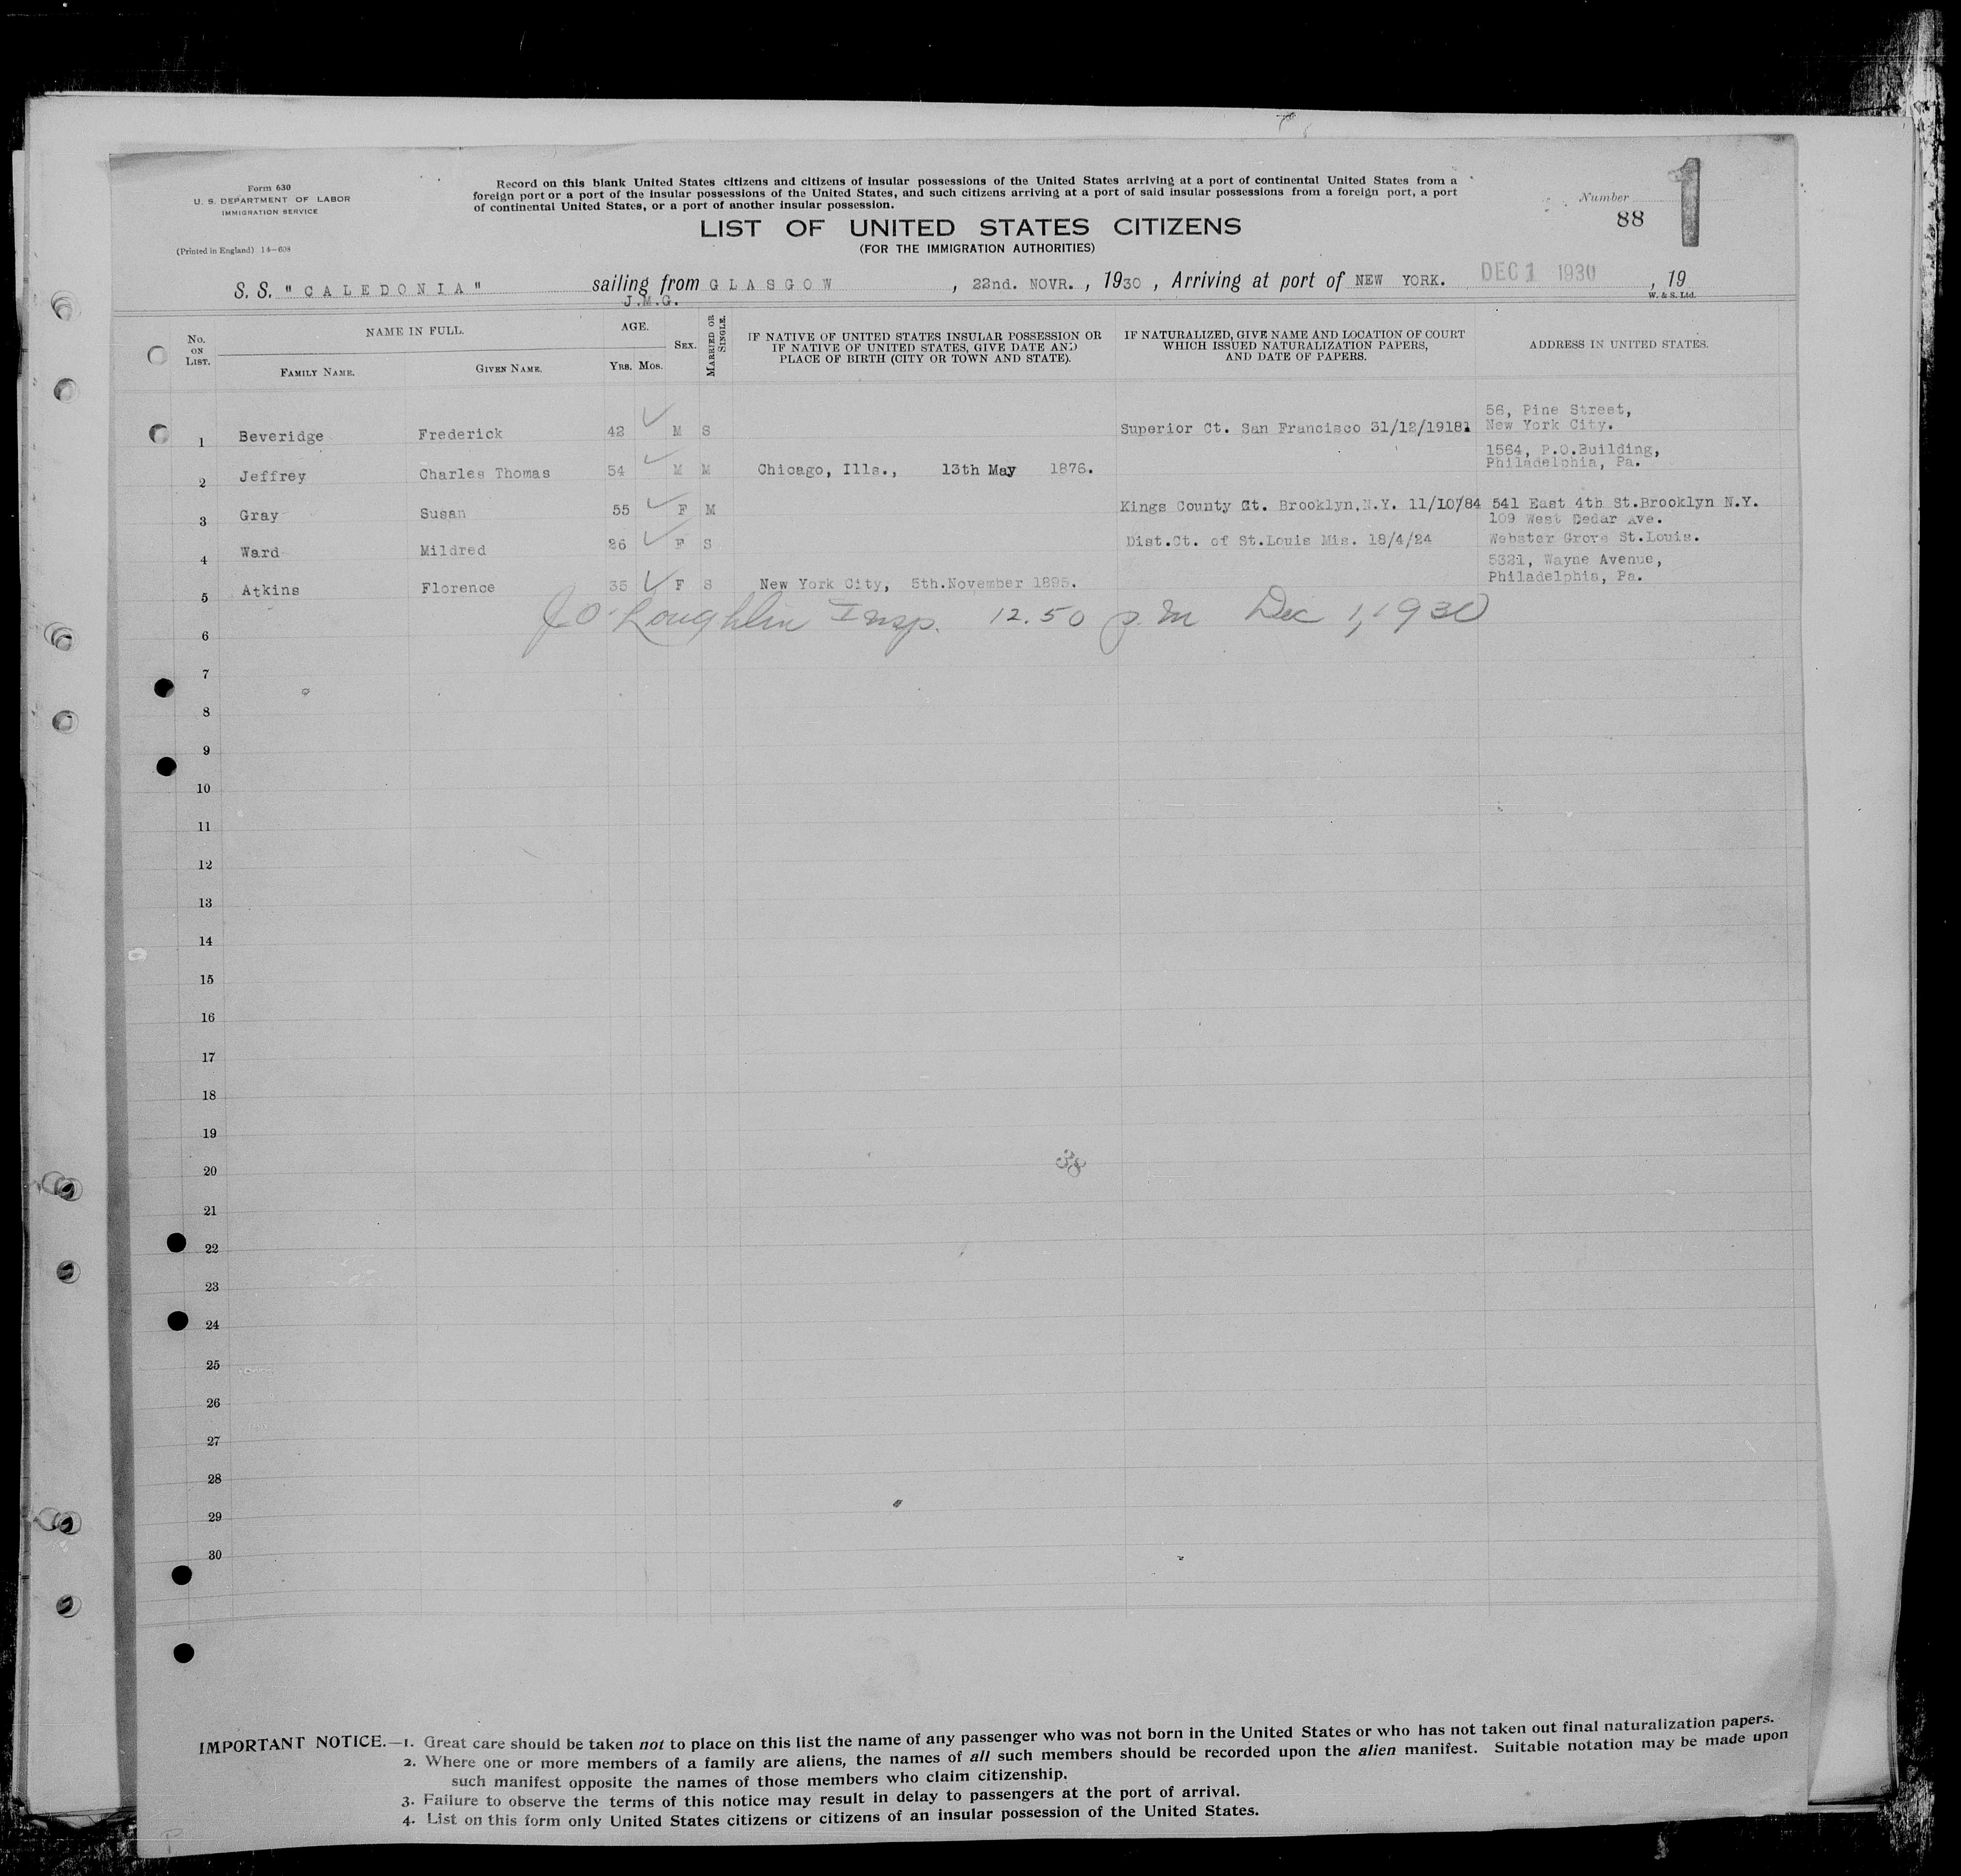 Form 630
U. S. DEPARTMENT OF LABOR
IMMIGRATION SERVICE
(Printed in England) 14—608
Record on this blank United States citizens and citizens of insular possessions of the United States arriving at a port of continental United States from a
foreign port or a port of the insular possessions of the United States, and such citizens arriving at a port of said insular possessions from a foreign port, a port
of continental United States, or a port of another insular possession.
LIST OF UNITED STATES CITIZENS
(FOR THE IMMIGRATION AUTHORITIES)
Number
88
1
S. S. "CALEDONIA" sailing from GLASGOW, 22nd. NOVR., 1930, Arriving at port of NEW YORK. DEC 1 1930, 19
J.M.G.
W. & S. Ltd.
No. ON LIST.
NAME IN FULL.
FAMILY NAME.
GIVEN NAME.
AGE.
YRS. MOS.
SEX.
MARRIED OR SINGLE.
IF NATIVE OF UNITED STATES INSULAR POSSESSION OR
IF NATIVE OF UNITED STATES, GIVE DATE AND
PLACE OF BIRTH (CITY OR TOWN AND STATE).
IF NATURALIZED, GIVE NAME AND LOCATION OF COURT
WHICH ISSUED NATURALIZATION PAPERS,
AND DATE OF PAPERS.
ADDRESS IN UNITED STATES.
56, Pine Street,
1 Beveridge Frederick 42 ✓ M S Superior Ct. San Francisco 31/12/1918 New York City.
1564, P.O.Building,
2 Jeffrey Charles Thomas 54 ✓ M M Chicago, Ills., 13th May 1876. Philadelphia, Pa.
3 Gray Susan 55 ✓ F M Kings County Ct. Brooklyn,N.Y. 11/10/84 541 East 4th St.Brooklyn N.Y.
109 West Cedar Ave.
4 Ward Mildred 26 ✓ F S Dist.Ct. of St.Louis Mis. 18/4/24 Webster Grove St.Louis.
5321, Wayne Avenue,
5 Atkins Florence 35 ✓ F S New York City, 5th.November 1895. Philadelphia, Pa.
J O'Loughlin Insp. 12.50 p.m Dec 1, 1930
6
7
8
9
10
11
12
13
14
15
16
17
18
19
20
38
21
22
23
24
25
26
27
28
29
30
IMPORTANT NOTICE.—1. Great care should be taken not to place on this list the name of any passenger who was not born in the United States or who has not taken out final naturalization papers.
2. Where one or more members of a family are aliens, the names of all such members should be recorded upon the alien manifest. Suitable notation may be made upon
such manifest opposite the names of those members who claim citizenship.
3. Failure to observe the terms of this notice may result in delay to passengers at the port of arrival.
4. List on this form only United States citizens or citizens of an insular possession of the United States.